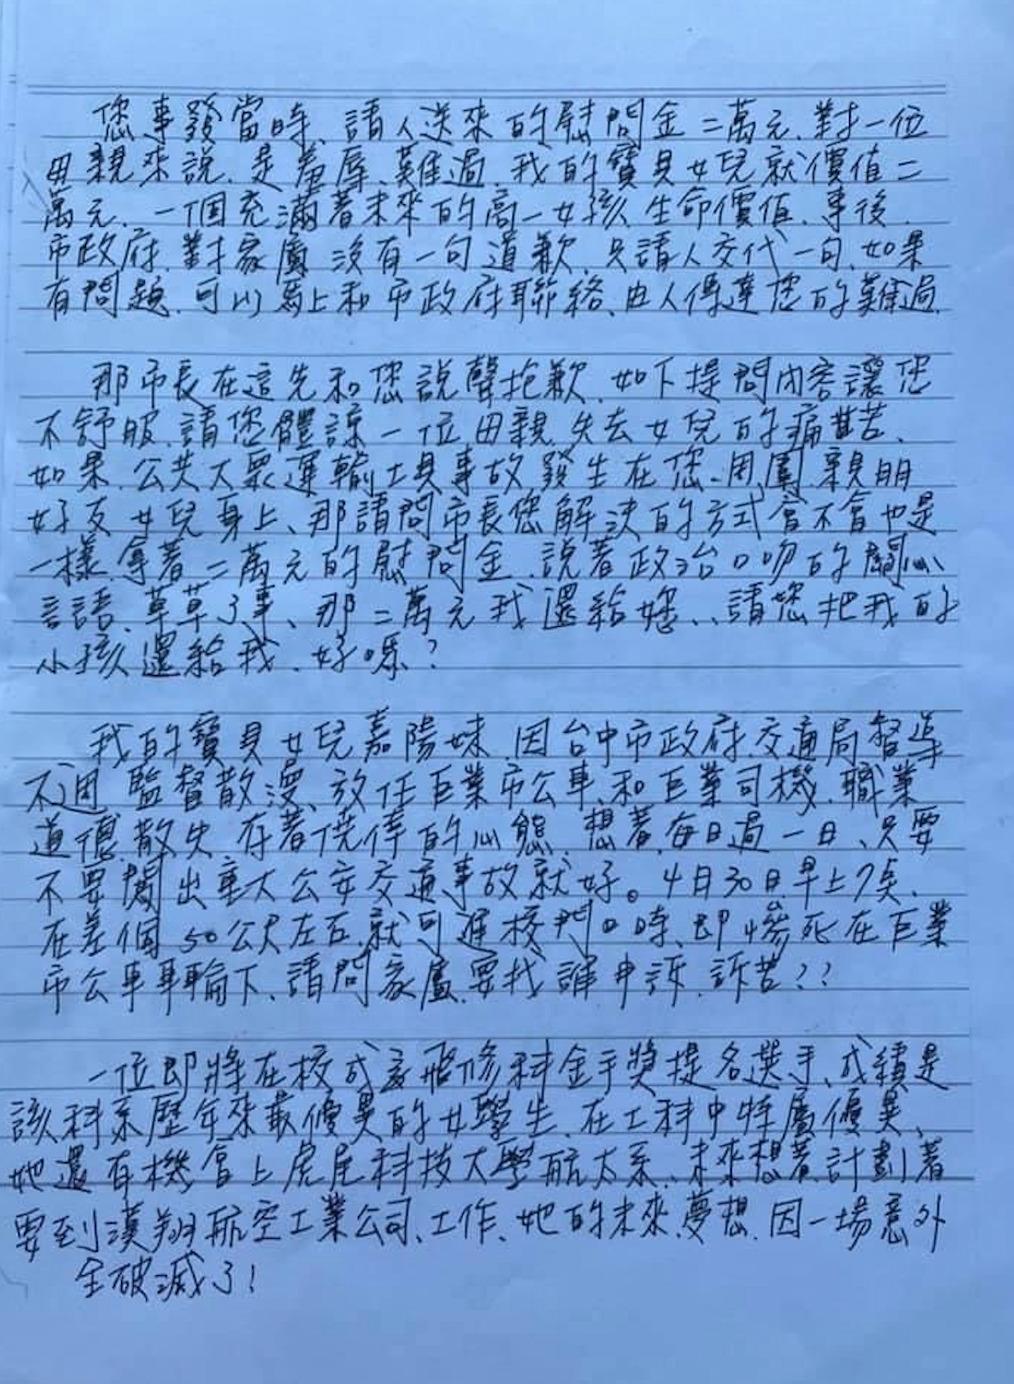 您事發當時、請人送來的慰問金二萬元、對一位
母親來說、是羞辱、難過、我的寶貝女兒就價值二
萬元、一個充滿著未來的高一女孩生命價值、事後、
市政府、對家屬沒有一句道歉、只請人交代一句、如果
有問題、可以馬上和市政府聯絡、由人傳達您的難過、
那市長在這先和您說聲抱歉、如下提問內容讓您
不舒服、請您體諒一位母親失去女兒的痛苦、
如果、公共大眾運輸工具事故發生在您、周圍親朋
好友女兒身上、那請問市長您解決的方式會不會也是
一樣、拿著二萬元的慰問金、說著政治口吻的關心
言語、草草了事、那二萬元我還給妳、、請您把我的
小孩還給我、好嗎？
我的寶貝女兒嘉陽妹、因台中市政府交通局督導
不週、監督散漫、放任巨業市公車、和巨業司機、職業
道德散失、存著僥倖的心態、想著每日過一日、只要
不要闖出重大公安交通事故就好。4月30日早上7點、
在差個50公尺左右就可進校門口時、即慘死在巨業
市公車車輪下、請問家屬要找誰申訴、訴苦??
一位即將在校成為飛修科金手獎提名選手、成績是
該科系歷年來最優異的女學生、在工科中特屬優異、
她還有機會上虎尾科技大學航太系、未來想著計劃著
要到漢翔航空工業公司、工作、她的未來、夢想、因一場意外
全破滅了!